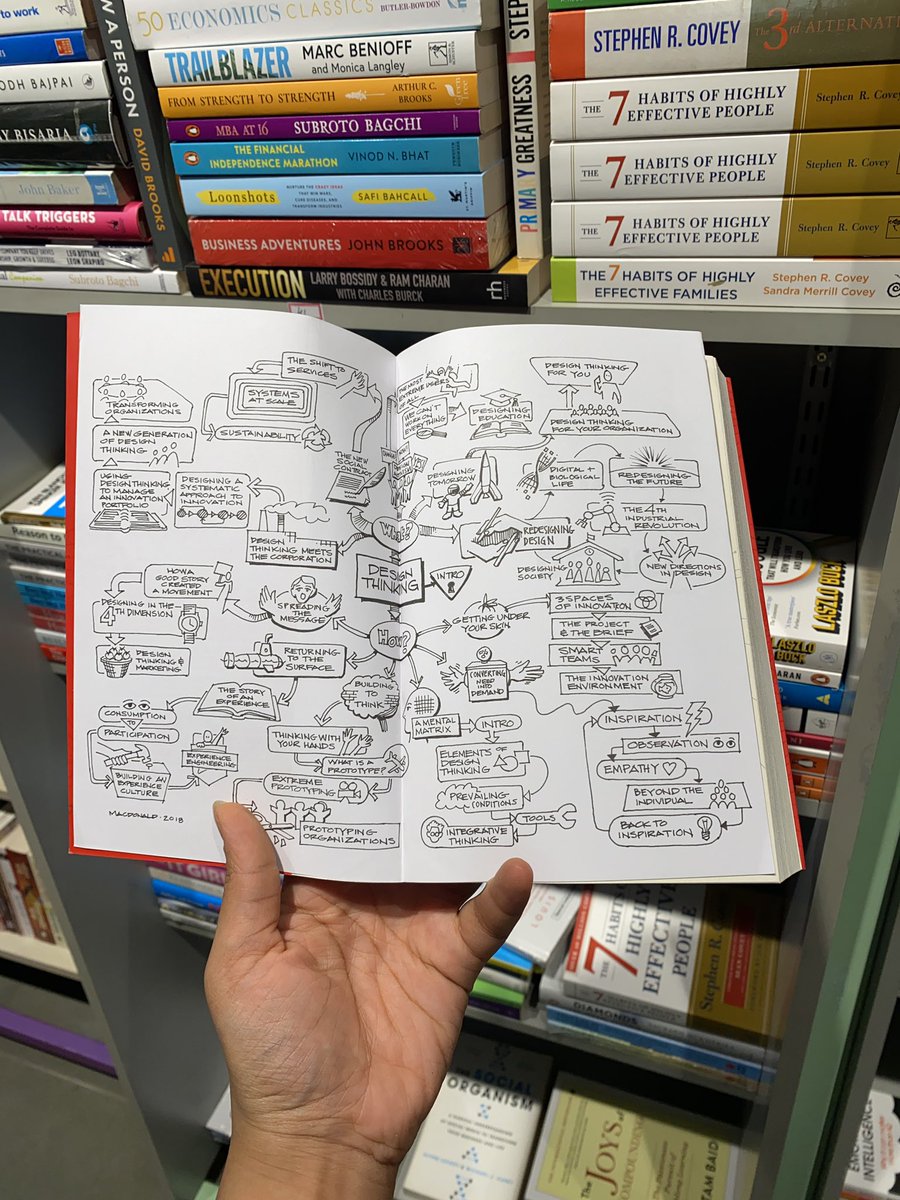 50 ECONOMICS CLASSICS
BUTLER-BOWDON
TRAILBLAZER
MARC BENIOFF
and Monica Langley
FROM STRENGTH TO STRENGTH
ARTHUR C. BROOKS
Green Tree
MBA AT 16
SUBROTO BAGCHI
THE FINANCIAL
INDEPENDENCE MARATHON
VINOD N. BHAT
Loonshots
NURTURE THE CRAZY IDEAS
THAT WIN WARS,
CURE DISEASES, AND
TRANSFORM INDUSTRIES
SAFI BAHCALL
BUSINESS ADVENTURES
JOHN BROOKS
EXECUTION
LARRY BOSSIDY & RAM CHARAN
WITH CHARLES BURCK
rh
to work
ODH BAJPAI
Y BISARIA
John Baker
TALK TRIGGERS
LEO BOTTARY
LEON SHAPIRO
Subroto Bagchi
A PERSON
DAVID BROOKS
STEP
PRIMARY GREATNESS
STEPHEN R. COVEY
The 3rd ALTERNATI
THE 7 HABITS OF HIGHLY
EFFECTIVE PEOPLE
Stephen R. Covey
THE 7 HABITS OF HIGHLY
EFFECTIVE PEOPLE
Stephen R. Covey
THE 7 HABITS OF HIGHLY
EFFECTIVE PEOPLE
Stephen R. Covey
THE 7 HABITS OF HIGHLY
EFFECTIVE FAMILIES
Stephen R. Covey
Sandra Merrill Covey
TRANSFORMING
ORGANIZATIONS
A NEW GENERATION
OF DESIGN
THINKING
USING
DESIGN THINKING
TO MANAGE
AN INNOVATION
PORTFOLIO
DESIGNING A
SYSTEMATIC
APPROACH TO
INNOVATION
SYSTEMS
AT SCALE
THE SHIFT TO
SERVICES
SUSTAINABILITY
THE NEW
SOCIAL
CONTRACT
DESIGN
THINKING MEETS
THE CORPORATION
WHAT?
DESIGN
THINKING
INTRO
HOW?
THE MOST
EXTREME USERS
OF ALL
WE CAN'T
WORK ON
EVERYTHING
DESIGNING
EDUCATION
DESIGN THINKING
FOR YOU
DESIGN THINKING
FOR YOUR ORGANIZATION
DESIGNING
TOMORROW
DIGITAL +
BIOLOGICAL
LIFE
REDESIGNING
THE FUTURE
THE 4TH
INDUSTRIAL
REVOLUTION
REDESIGNING
DESIGN
DESIGNING
SOCIETY
NEW DIRECTIONS
IN DESIGN
HOW A
GOOD STORY
CREATED
A MOVEMENT
DESIGNING IN THE
4TH DIMENSION
DESIGN
THINKING &
MARKETING
SPREADING
THE
MESSAGE
RETURNING
TO THE
SURFACE
THE STORY
OF AN
EXPERIENCE
CONSUMPTION
TO
PARTICIPATION
BUILDING AN
EXPERIENCE
CULTURE
EXPERIENCE
ENGINEERING
BUILDING
TO
THINK
THINKING WITH
YOUR HANDS
WHAT IS A
PROTOTYPE?
EXTREME
PROTOTYPING
PROTOTYPING
ORGANIZATIONS
MACDONALD · 2018
GETTING UNDER
YOUR SKIN
3 SPACES
OF INNOVATION
THE PROJECT
& THE BRIEF
SMART
TEAMS
THE INNOVATION
ENVIRONMENT
CONVERTING
NEED
INTO
DEMAND
A MENTAL
MATRIX
INTRO
ELEMENTS OF
DESIGN
THINKING
PREVAILING
CONDITIONS
TOOLS
INTEGRATIVE
THINKING
INSPIRATION
OBSERVATION
EMPATHY
BEYOND THE
INDIVIDUAL
BACK TO
INSPIRATION
LASZLO BOCK
LASZLO
BOCK
THE 7
HABITS OF
HIGHLY
EFFECTIVE
PEOPLE
Stephen R. Covey
THE SOCIAL
ORGANISM
The JOYS of
COMPOUNDING
TAM BAID
EMO
INTELLIGENCE